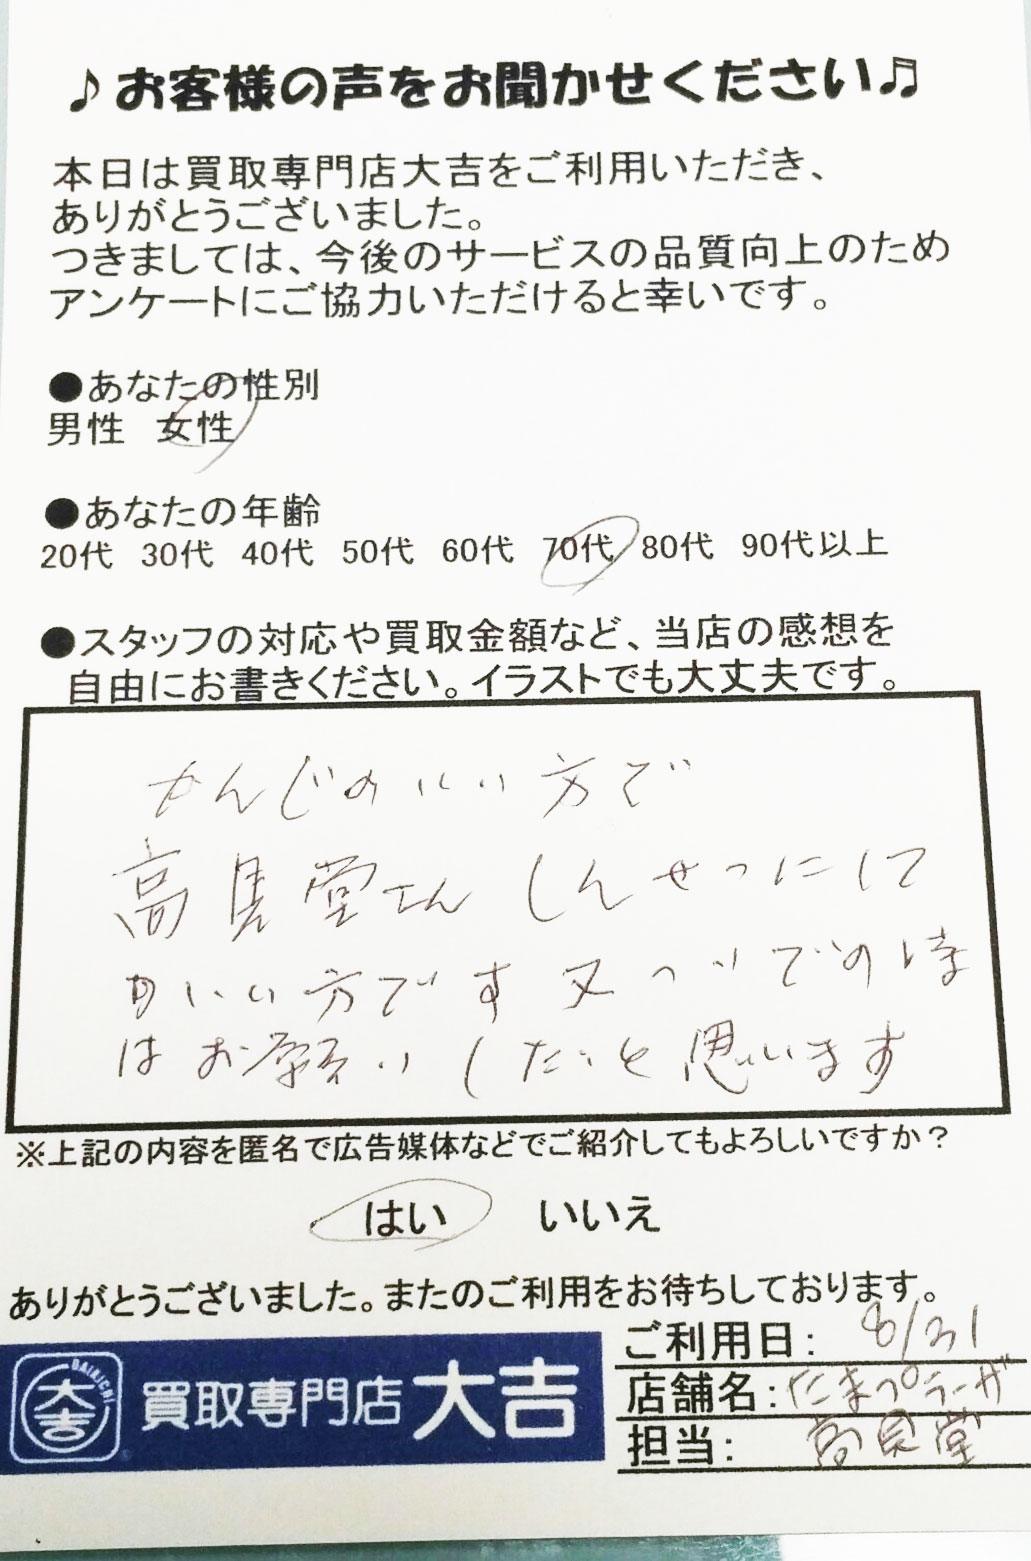 ♪お客様の声をお聞かせください♬
本日は買取専門店大吉をご利用いただき、
ありがとうございました。
つきましては、今後のサービスの品質向上のため
アンケートにご協力いただけると幸いです。
●あなたの性別
男性 女性
●あなたの年齢
20代 30代 40代 50代 60代 70代 80代 90代以上
●スタッフの対応や買取金額など、当店の感想を
自由にお書きください。イラストでも大丈夫です。
かんじのいい方で
高見堂さんしんせつにして
かいい方です又ついでの時
はお願いしたいと思います
※上記の内容を匿名で広告媒体などでご紹介してもよろしいですか？
はい いいえ
ありがとうございました。またのご利用をお待ちしております。
ご利用日： 8/31
店舗名：たまプラーザ
担当： 高見堂
DAIKICHI
大吉
買取専門店 大吉